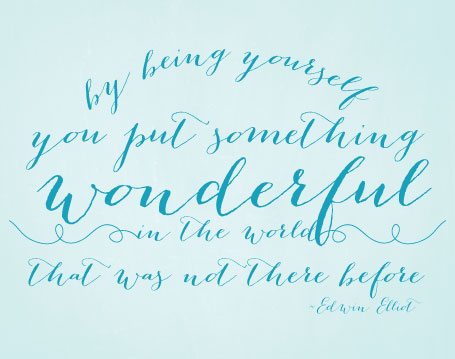 by being yourself
you put something
wonderful
in the world
that was not there before
~Edwin Elliot